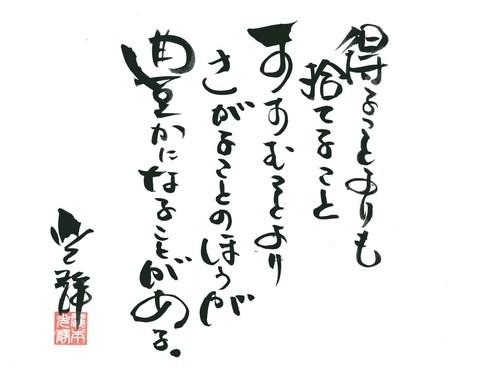 得ることよりも
捨てること
すすむことより
さがることのほうが
豊かになることがある。